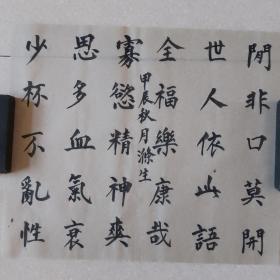 閒非口莫開
世人依此語
全福樂康哉
甲辰秋月滌生
寡慾精神爽
思多血氣衰
少杯不亂性